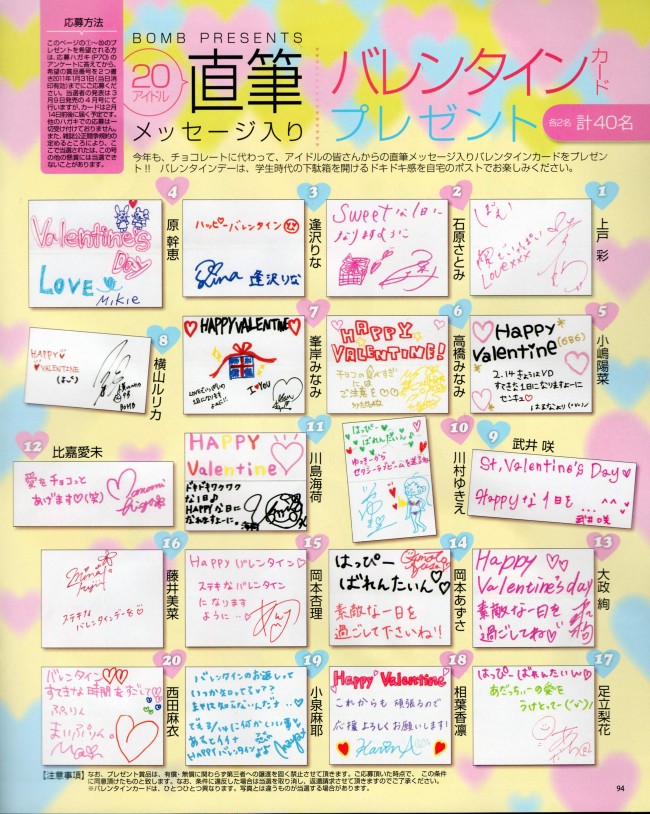 応募方法
このページの①～⑳のプ
レゼントを希望される方
は、応募ハガキ(P70)の
アンケートに答えてから、
希望の賞品番号を2つ書
き2011年1月31日(当日消
印有効)までにご応募くだ
さい。当選者の発表は3
月9日発売の4月号にて
行いますが、カードは2月
14日前後に届く予定です。
他のハガキでの応募は一
切受け付けておりません。
また、雑誌公正競争規約の
定めるところにより、こ
こで当選された方は、この号
の他の懸賞には当選でき
ないことがあります。
BOMB PRESENTS
20
アイドル
直筆
メッセージ入り
バレンタイン
カード
プレゼント
各2名 計40名
今年も、チョコレートに代わって、アイドルの皆さんからの直筆メッセージ入りバレンタインカードをプレゼン
ト!! バレンタインデーは、学生時代の下駄箱を開けるドキドキ感を自宅のポストでお楽しみください。
1
上戸 彩
Love xxx
2
石原さとみ
Sweetな1日に
なりますように
3
逢沢りな
ハッピーバレンタイン
Rina 逢沢りな
4
原 幹恵
Valentine's
Day
LOVE
MIKIE
5
小嶋陽菜
Happy
Valentine
2.14 きょうはVD
すてきな1日になりますよーに
6
高橋みなみ
HAPPY
VALENTINE!
チョコの食べすぎ
には
ご注意を
7
峯岸みなみ
HAPPY VALENTINE
I ♡ YOU
8
横山ルリカ
HAPPY
VALENTINE
9
武井 咲
St, Valentine's Day
Happyな1日を... ^^
武井咲
10
川村ゆきえ
はっぴー
ばれんたいん
ゆっきーから
11
川島海荷
HAPPY
Valentine
ドキドキワクワク
な1日♪
HAPPYな日に
なれますよーに。
12
比嘉愛未
愛をチョコっと
あげます♡(笑)
13
大政 絢
Happy
Valentine's day
素敵な一日を
過ごしてね
14
岡本あずさ
はっぴー
ばれんたいん♡
素敵な一日を
過ごして下さいね!!
15
岡本杏理
Happy バレンタイン
ステキなバレンタイン
になります
ように...
16
藤井美菜
ステキな
バレンタインデーを
17
足立梨花
はっぴーばれんたいん
あだっちぃーの愛を
うけとってー
18
相葉香凛
Happy Valentine
これからも頑張るので
応援よろしくお願いします!
Karin A
19
小泉麻耶
バレンタインのお返しって
HAPPYバレンタイン
20
西田麻衣
バレンタイン
すてきな時間をすごして
ぷりん
まいぷりん。
【注意事項】なお、プレゼント賞品は、有償・無償に関わらず第三者への譲渡を固く禁止させて頂きます。ご応募頂いた時点で、この条件
に同意頂けたものと致します。なお、条件に違反した場合は当選を取り消し、返還請求させて頂きますのでご了承ください。
※バレンタインカードは、ひとつひとつ異なります。写真とは違うものが当選する場合があります。
94